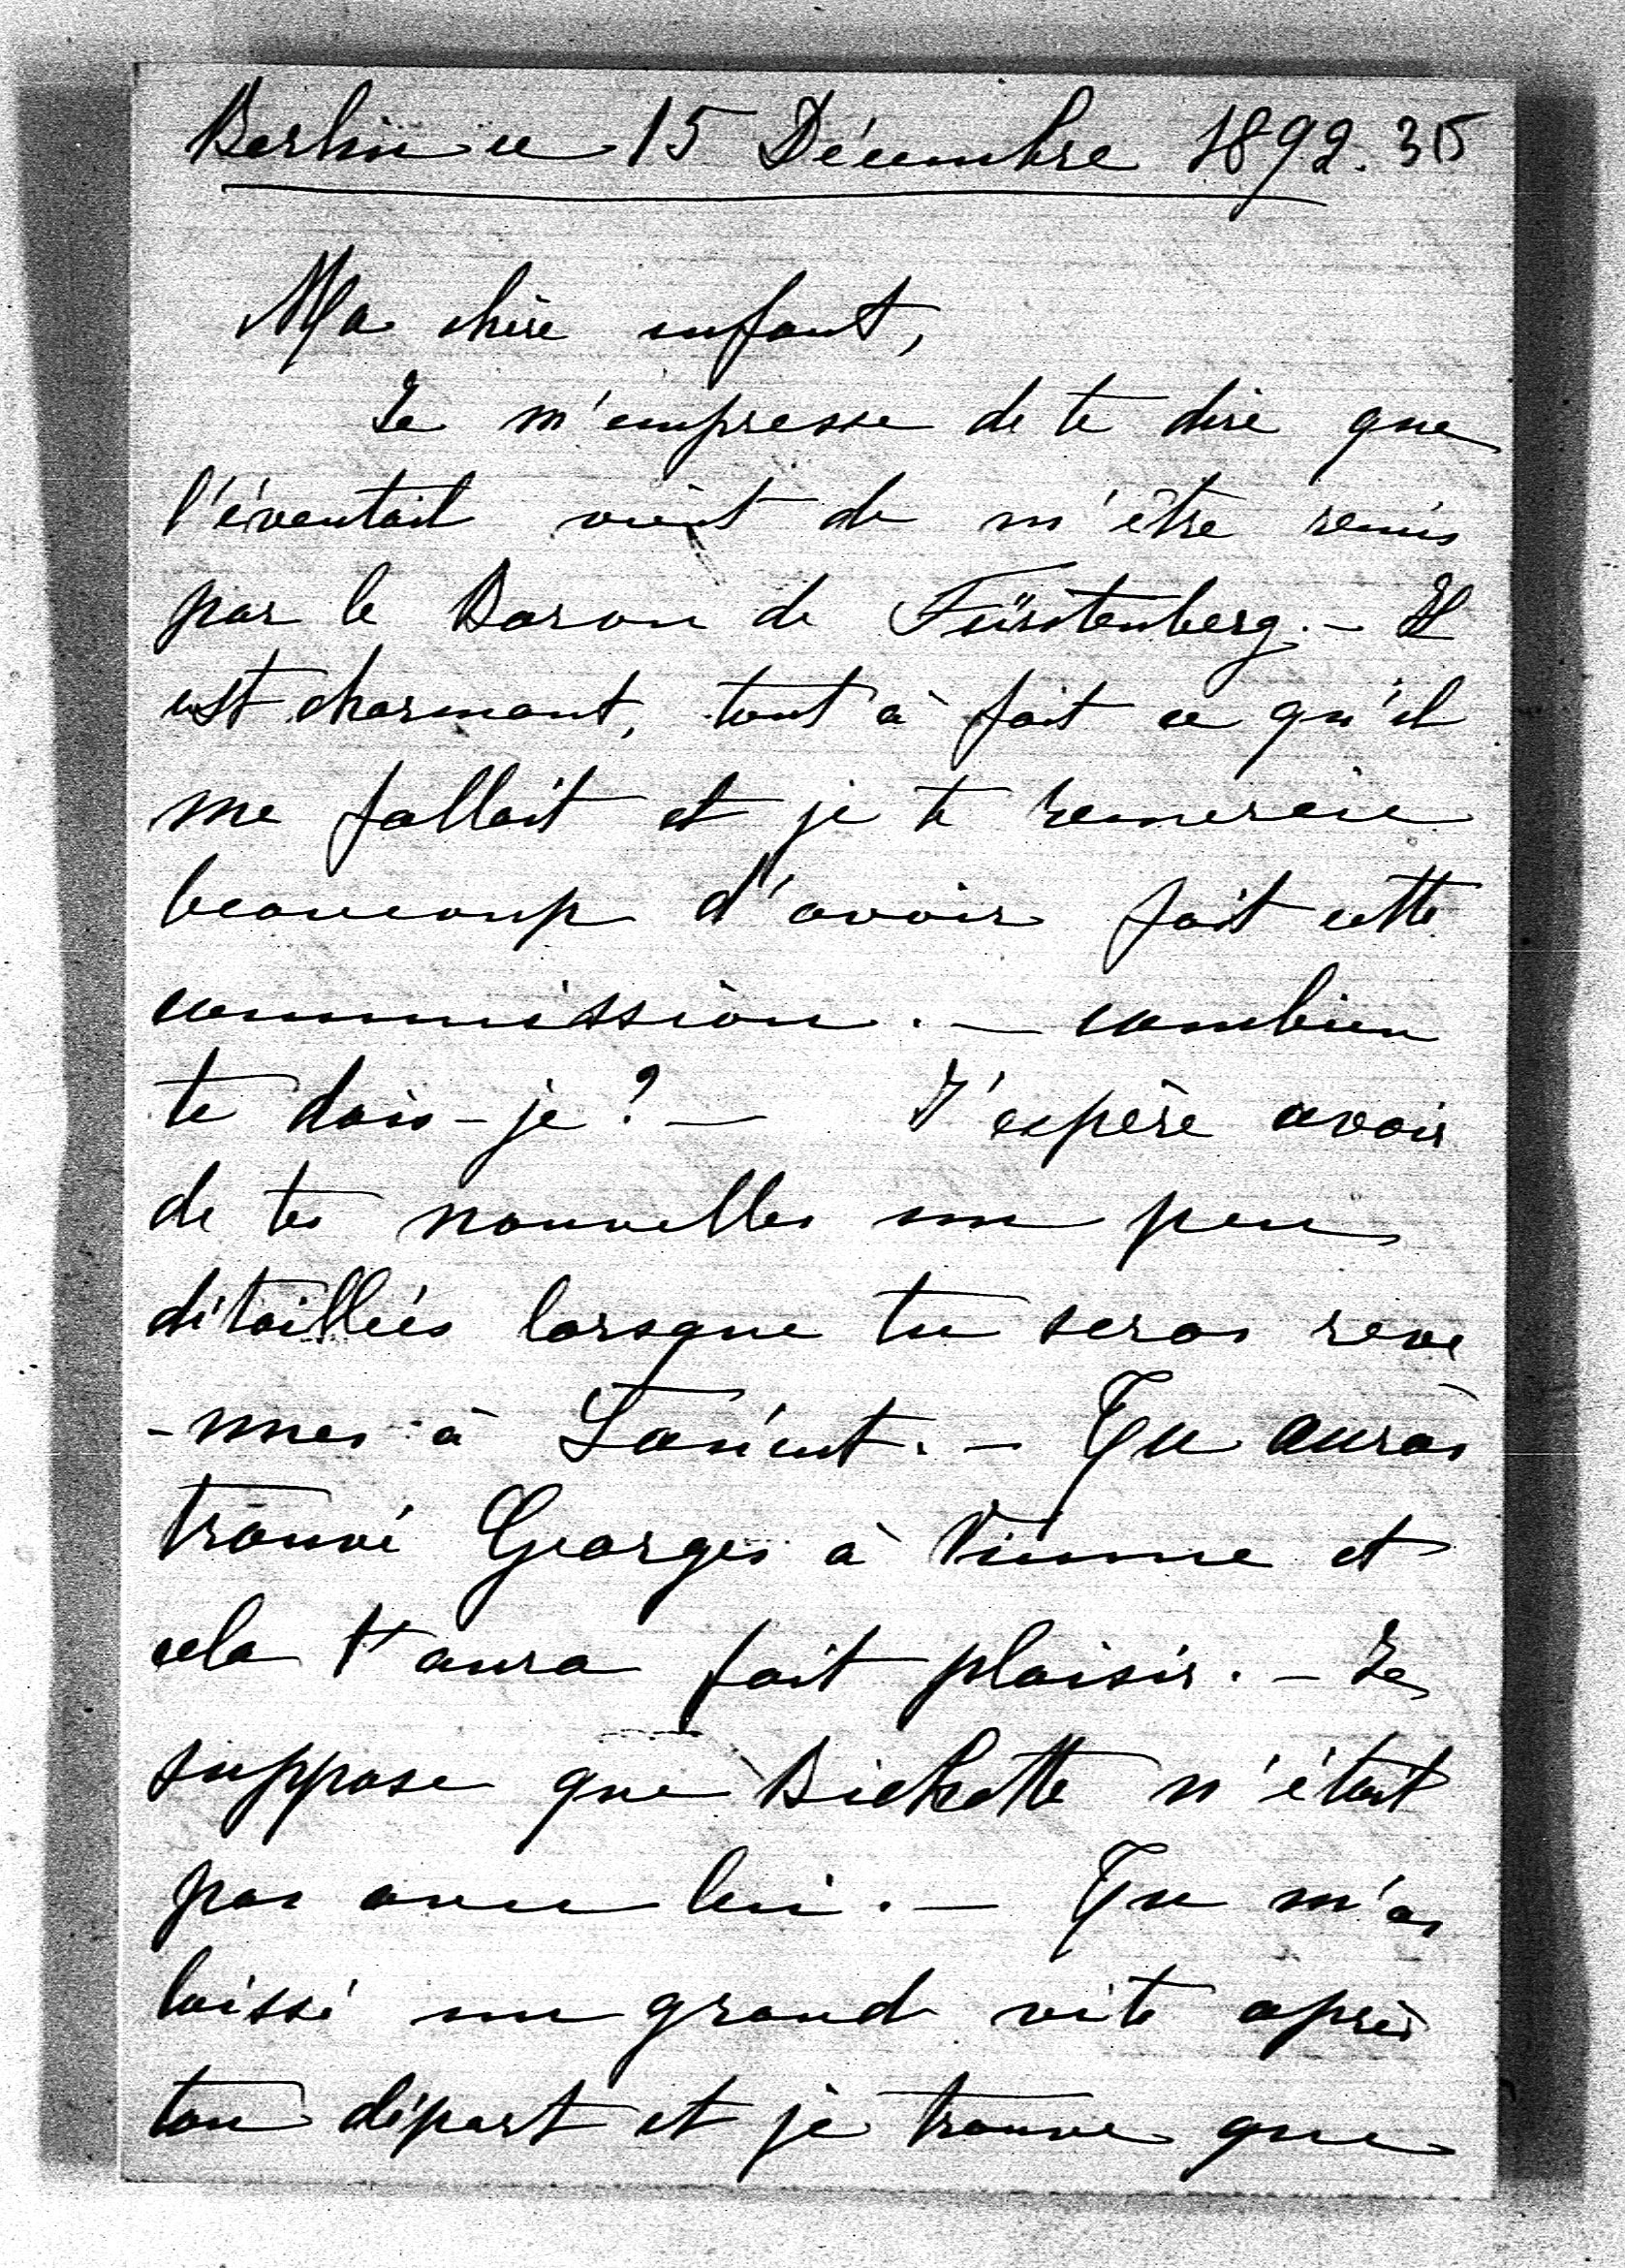 Berlin ce 15 Décembre 1892. 315
Ma chère enfant,
Je m'empresse de te dire que
l'éventail vient de m'être remis
par le Baron de Fürstenberg. - Il
est charmant, tout à fait ce qu'il
me fallait et je te remercie
beaucoup d'avoir fait cette
commission. - combien
te dois-je? - J'espère avoir
de tes nouvelles un peu
détaillées lorsque tu seras reve
-nue à Łańcut. - Tu auras
trouvé Georges à Vienne et
cela t'aura fait plaisir. - Je
suppose que Bichette n'était
pas avec lui. - Tu m'as
laissé un grand vite après
ton départ et je trouve que